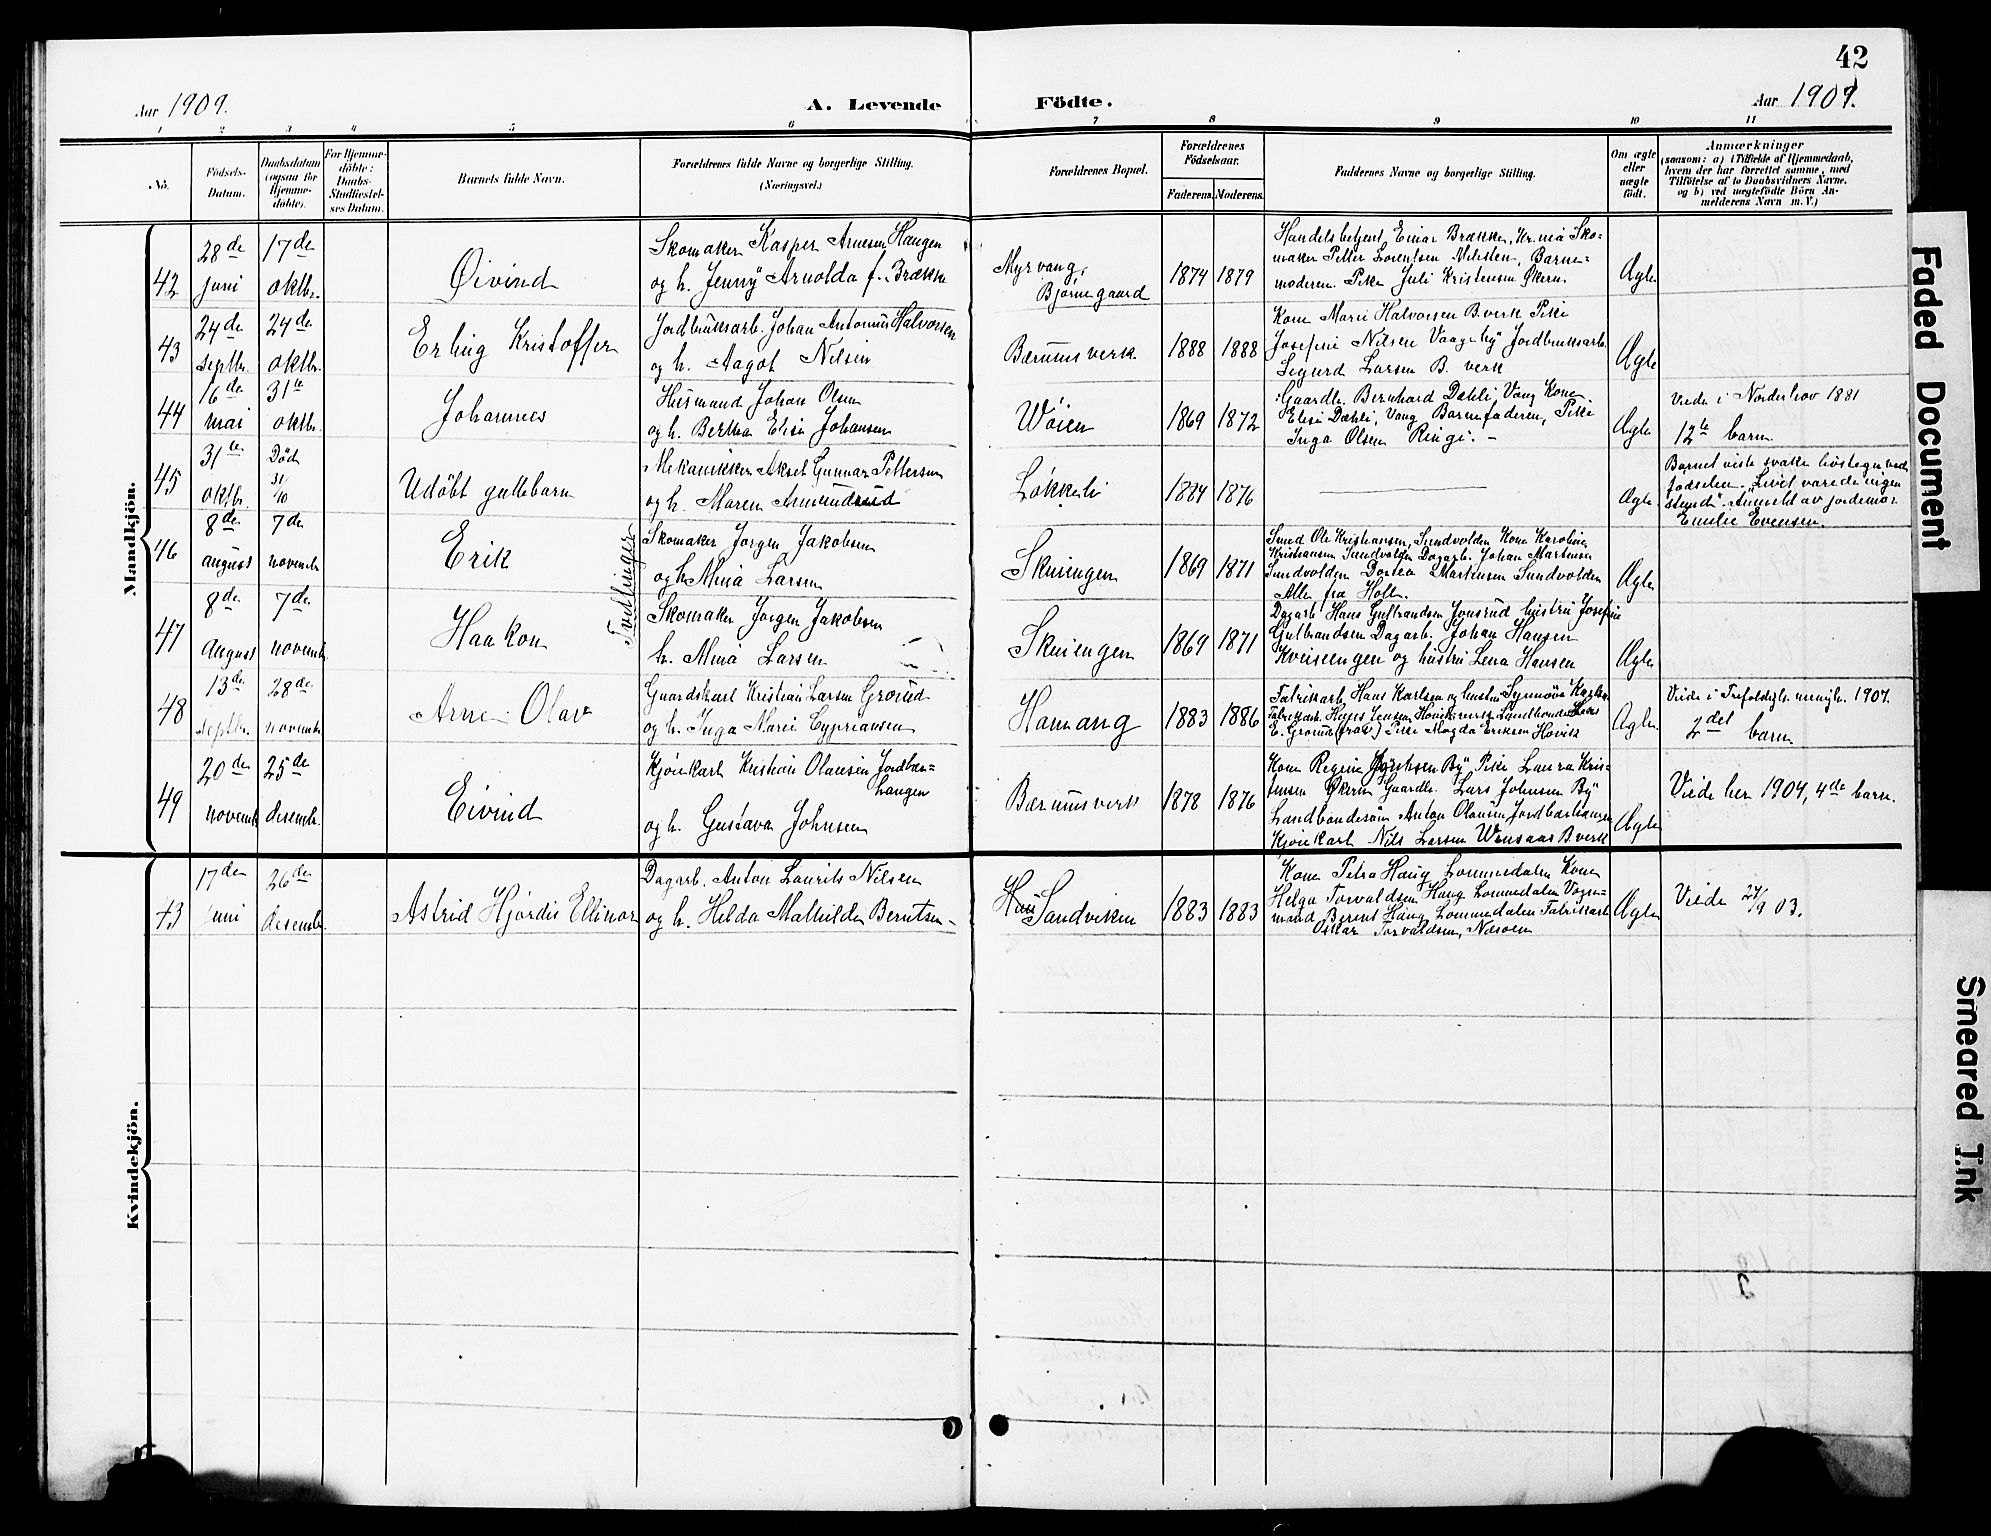 42
Aar 1909.
A. Levende
Födte.
Aar 1909.
1 2 3 4 5 6 7 8 9 10 11
No.
Födsels-
Datum.
Daabsdatum
(ogsaa for
Hjemme-
döbte).
For Hjemme-
döbte:
Daabs-
Stadfæstel-
ses Datum.
Barnets fulde Navn.
Forældrenes fulde Navne og borgerlige Stilling.
(Næringsvei.)
Forældrenes Bopæl.
Forældrenes
Födselsaar.
Faderens.
Moderens.
Faddernes Navne og borgerlige Stilling.
Om ægte
eller
uægte
født.
Anmærkninger
(saasom: a) i Tilfælde af Hjemmedaab,
hvem der har forrettet samme, med
Tilföielse af to Daabsvidners Navne,
og b) ved uægtefödte Börn An-
melderens Navn m. V.)
Mandkjön.
42
28de
juni
17de
oktbr.
Øivind
Skomaker Kasper Arnesen Haugen
og h. Jenny Arnolda f. Brække
Myrvang,
Bjørnegaard
1874 1879
Handelsbetjent Einar Brækken, Kr.nia Sko-
maker Petter Lorentsen Nilsten, Barne-
moderen. Pike Juli Kristensen Økern.
Ægte
43
24de
septbr.
24de
oktbr.
Erling Kristoffer
Jordbruksarb. Johan Antonius Halvorsen
og h. Aagot Nilsen
Bærumsverk
1888 1888
Kone Marie Halvorsen B.verk Pike
Josefine Nilsen Vaageby Jordbruksarb.
Sigurd Larsen B. verk
Ægte
44
16de
mai
31te
oktbr.
Johannes
Husmand Johan Olsen
og h. Bertha Elise Johansen
Wøien
1869 1872
Gaardbr. Bernhard Dæhli, Vang Kone
Elise Dæhli, Vang Barnefaderen, Pike
Inga Olsen Ringi. -
Ægte
Viede i Norderhov 1881
12te barn.
45
31te
oktbr.
Død
31/10
Udøbt guttebarn
Mekaniker Aksel Gunnar Pettersen
og h. Maren Amundsrud
Løkkeli
1884 1876
Ægte
Barnet viste svake livstegn ved
fødselen. Livet varede ingen
stund. Anmeld av jordemor
Emilie Evensen.
46
8de
august
7de
novembr.
Erik
Tvillinger
Skomaker Jørgen Jakobsen
og h. Mina Larsen
Skuiengen
1869 1871
Smed Ole Kristiansen, Sundvolden Kone Karoline
Kristiansen Sundvolden Dagarb. Johan Martinsen
Sundvolden Dortea Martinsen Sundvolden
Alle fra Hole.
Ægte
47
8de
august
7de
novembr.
Haakon
Skomaker Jørgen Jakobsen
h. Mina Larsen
Skuiengen
1869 1871
Dagarb. Hans Gulbrandsen Jonsrud hustru Josefine
Gulbrandsen Dagarb. Johan Hansen
og hustru Lena Hansen
Ægte
48
13de
septbr.
28de
novembr.
Arne Olav
Gaardskarl Kristian Larsen Grorud
og h. Inga Marie Cypriansen
Hamang
1883 1886
Fabrikarb. Hans Karlsen og hustru Synnøve Karlsen
Fabrikarb. Hans Jensen Høviksverk Landhandler
E. Grorud Pike Magda Eriksen Høvik
Ægte
Viede i Trefoldigh. menigh. 1907.
2det barn
49
20de
novembr.
25de
desembr.
Eivind
Kjørekarl Kristian Olausen Jordbær-
haugen
og h. Gustava Johnsen
Bærumsverk
1878 1876
Kone Regine By Pike Laura Kris-
tensen Økern Gaardbr. Lars Johnsen By
Landbandesøn Anton Olausen Jordbærhaugen
Kjørekarl Nils Larsen B.verk
Ægte
Viede her 1904, 4de barn.
Kvindekjön.
43
17de
juni
26de
desembr.
Astrid Hjørdis Ellinor
Dagarb. Anton Laurits Nilsen
og h. Hilda Mathilde Berntsen
Sandviken
1883 1883
Kone Petra Haug Lommedalen Kone
Helga Torvaldsen Haug Lommedalen Vogn-
mand Bernt Haug Lommedalen Fabrikarb.
Oskar Torvaldsen, Nesøen
Ægte
Viede 27/9 03.
Faded Document
Smeared Ink